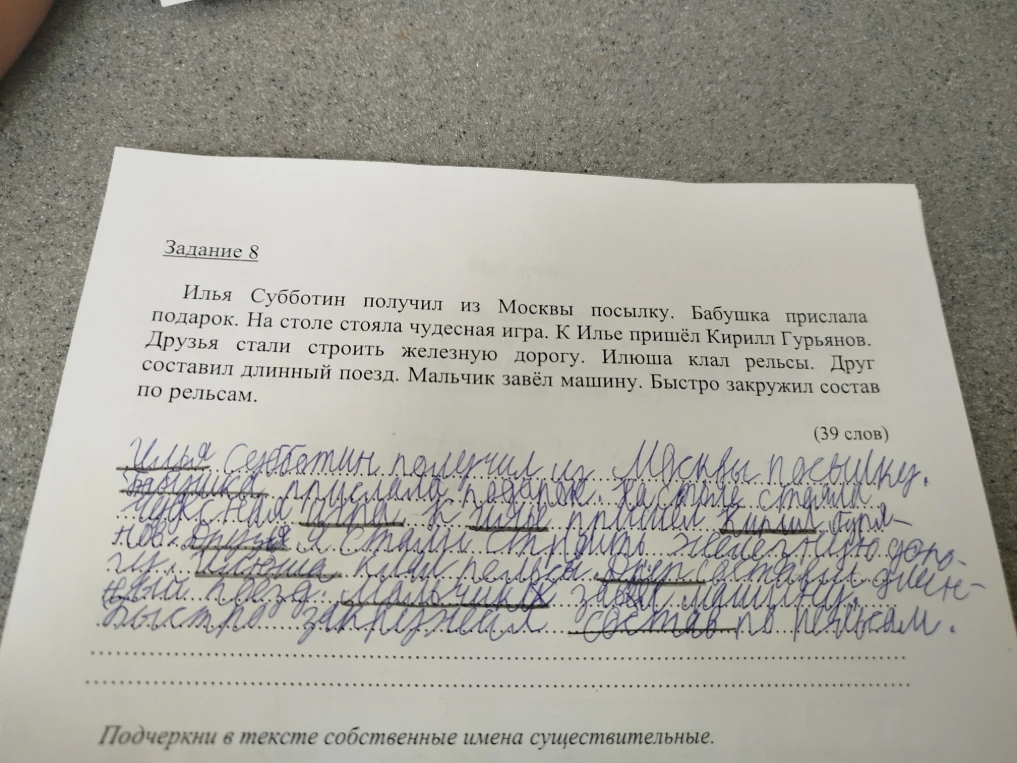 Задание 8
Илья Субботин получил из Москвы посылку. Бабушка прислала
подарок. На столе стояла чудесная игра. К Илье пришёл Кирилл Гурьянов.
Друзья стали строить железную дорогу. Илюша клал рельсы. Друг
составил длинный поезд. Мальчик завёл машину. Быстро закружил состав
по рельсам.
(39 слов)
Илья Субботин получил из Москвы посылку.
Бабушка прислала подарок. На столе стояла
игра. К пришёл Кирилл Гурья-
нов. Друзья стали строить железную доро-
гу. Илюша клал рельсы. Друг составил длин-
ный поезд. Мальчик завёл машину.
Быстро закружил состав по рельсам.
Подчеркни в тексте собственные имена существительные.